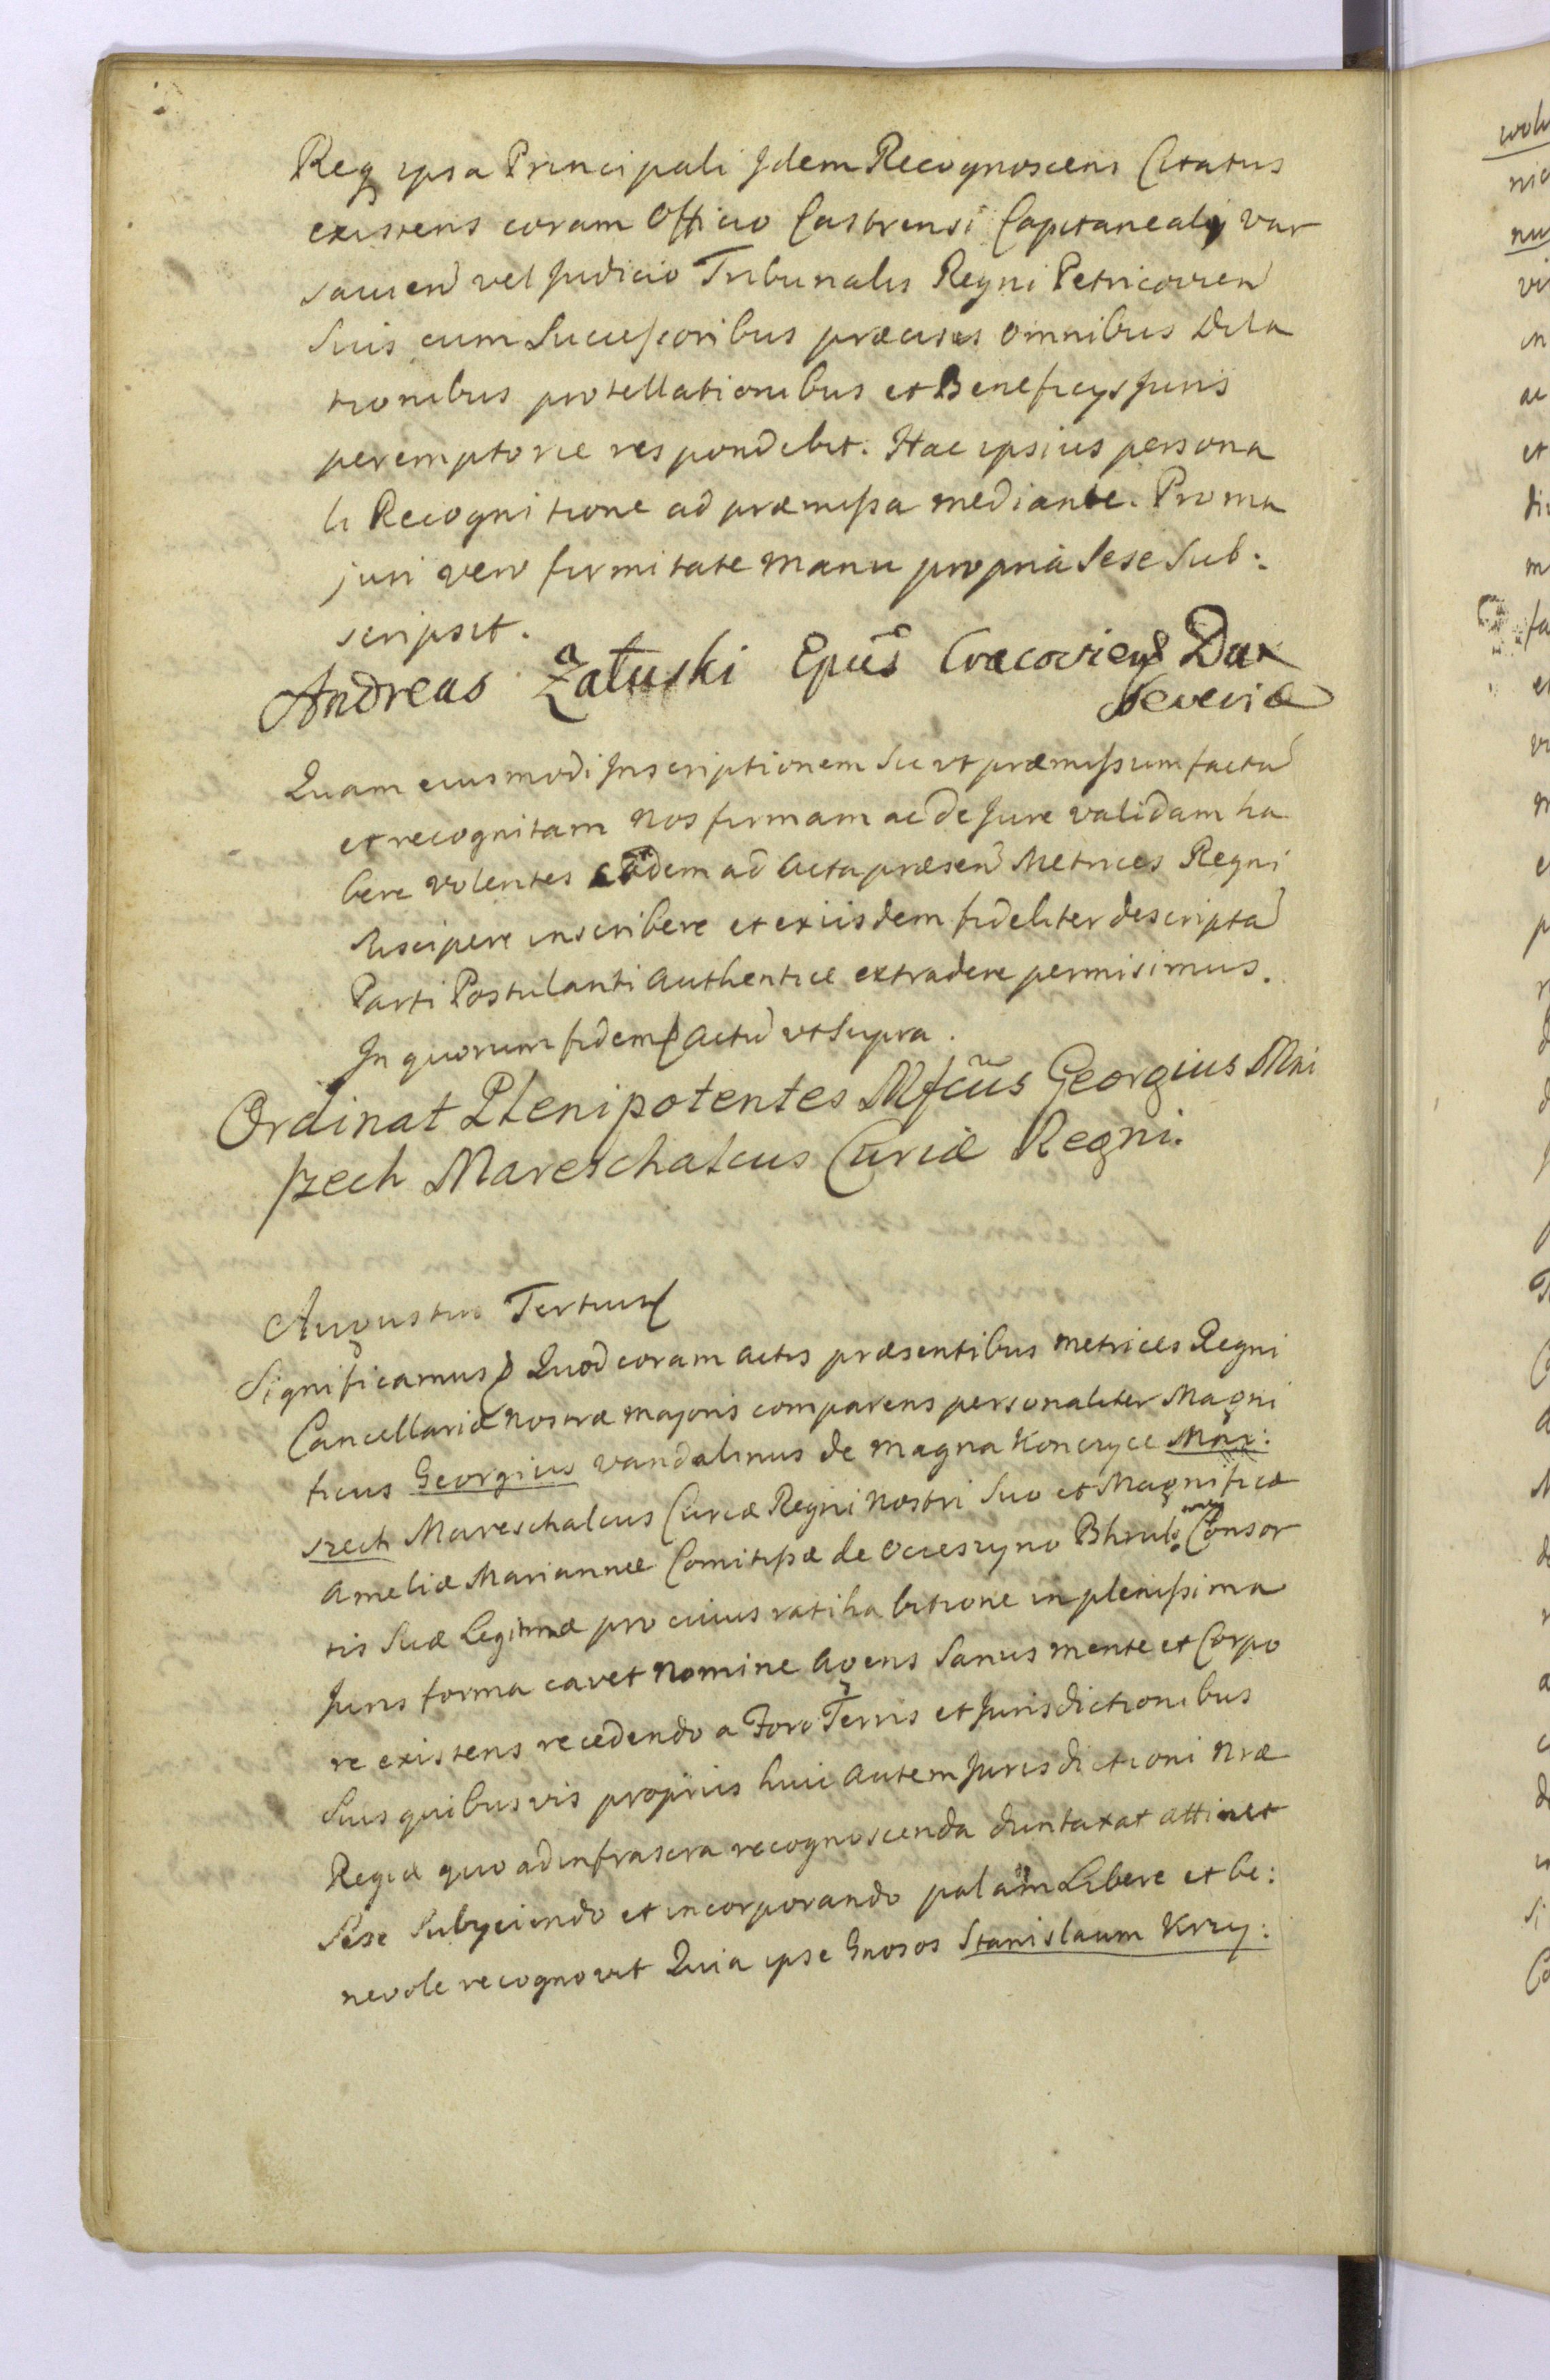 Req ipsa Principali Idem Recognoscens Citatus
existens coram Officio Castrensi Capitaneali Var
savien vel Judicio Tribunalis Regni Petricovien
Suis cum Successoribus præcisis omnibus Dila
tionibus protellationibus et Beneficys Juris
peremptorie respondebit. Hac ipsius persona
li Recognitione ad præmissa mediante. Pro ma
juri vero firmitate manu propria sese Sub:
scripsit.
Andreas a Załuski Epũs Cracoviens Dux
Severiæ
Quam eiusmodi Inscriptionem sic ut præmissum factã
et recognitam Nos firmam ac de Jure validam ha
bere volentes eadem ad Acta præsen Metrices Regni
suscipere inscribere et ex iisdem fideliter descriptã
Parti Postulanti authentice extradere permisimus.
In quorum fidem Actũ ut supra.
Ordinat Plenipotentes Mfcũs Georgius Mni
szech Mareschalcus Curiæ Regni.
Augustus Tertius
Significamus Quod coram actis præsentibus Metrices Regni
Cancellariæ nostræ majoris comparens personaliter Magni
ficus Georgius Vandalinus de Magna Konczyce Mni:
szech Mareschalcus Curiæ Regni Nostri suo et Magnificæ
Ameliæ Mariannæ Comitissæ de Ocieszyno Bhrul Consor
tis suæ Legitimæ pro cuius ratihabitione in plenissima
Juris forma cavet nomine agens sanus mente et Corpo
re existens recedendo a Foro Terris et Jurisdictionibus
suis quibusvis proprijs huic autem Jurisdictioni Nræ
Regiæ quo ad infrascra recognoscenda duntaxat attinet
sese subyciendo et incorporando palam Libere et be:
nevole recognovit Quia ipse Gnosos Stanislaum Krzy: